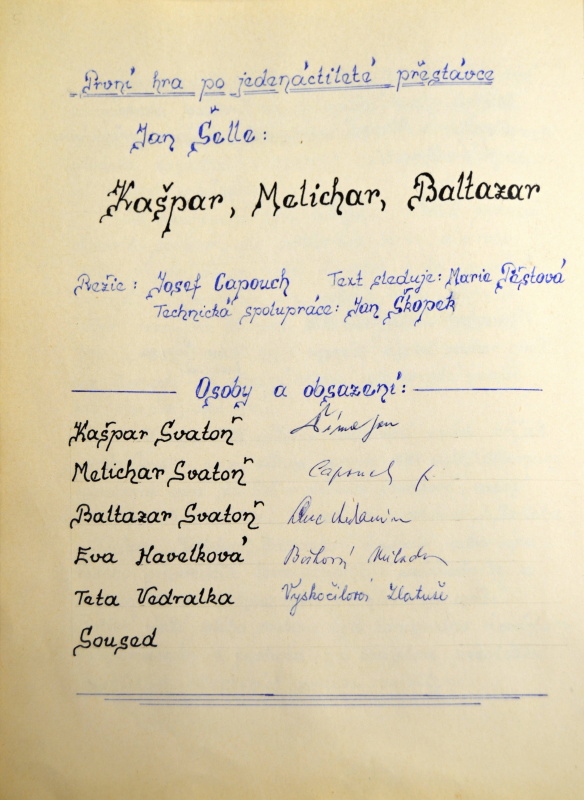 První hra po jedenáctileté přestávce
Jan Šette:
Kašpar, Melichar, Baltazar
Režie: Josef Capouch Text sleduje: Marie Pěstová
Technická spolupráce: Jan Škopek
Osoby a obsazení:
Kašpar Svatoň Šíma Jan
Melichar Svatoň Capouch
Baltazar Svatoň
Eva Havelková
Teta Vedralka Vyskočilová Zlatuše
Soused